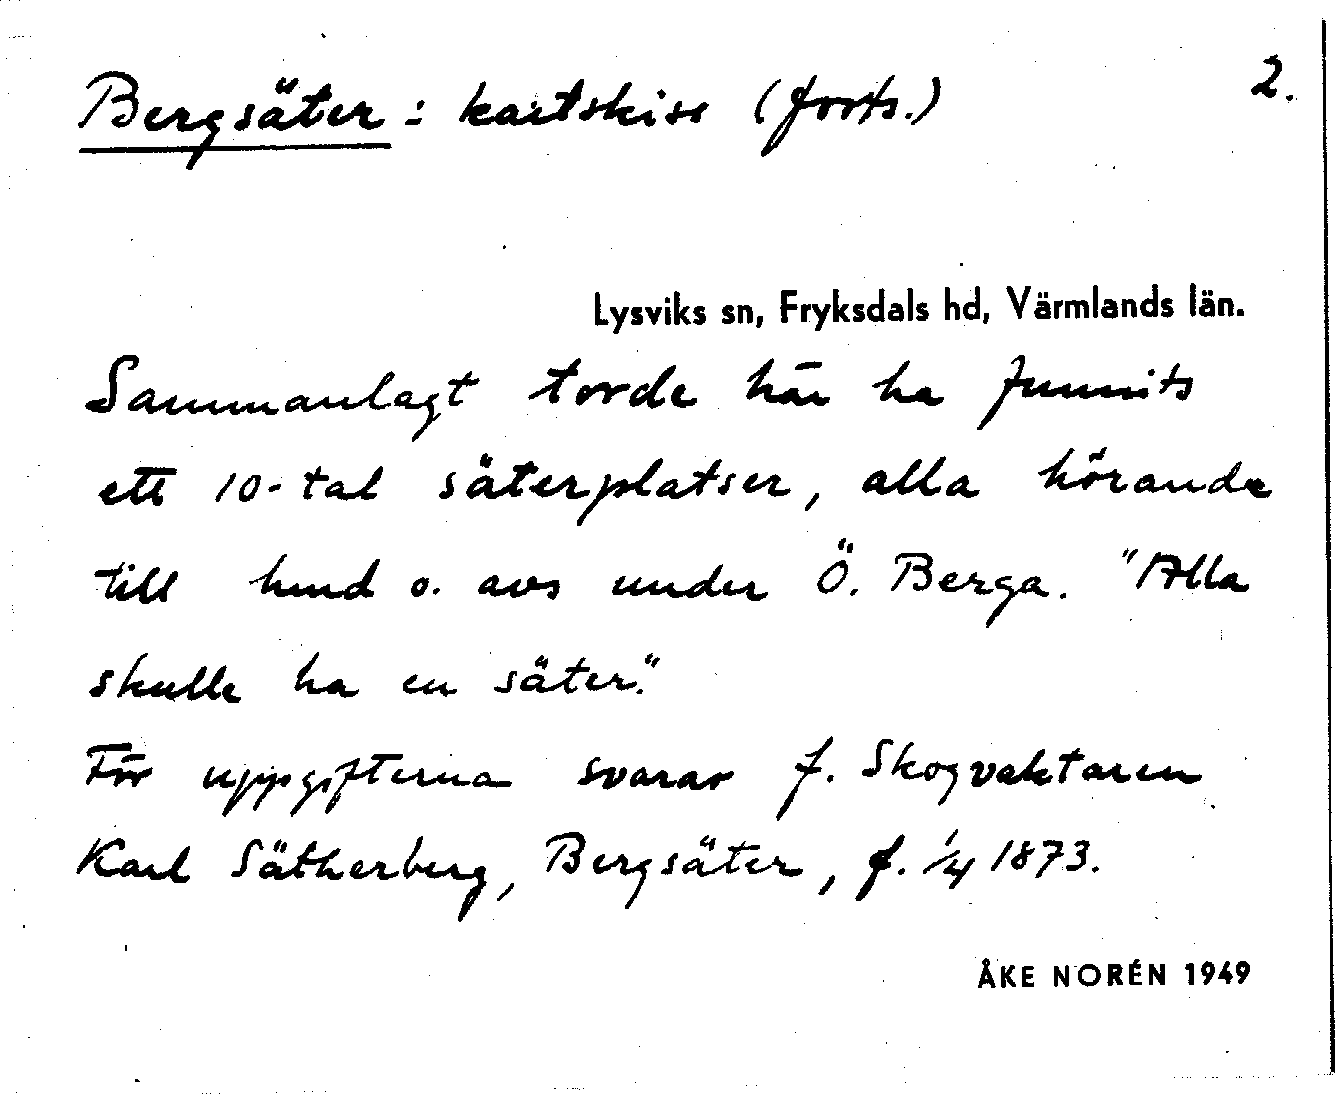 2.
Bergsäter : kartskiss (forts.)
Lysviks sn, Fryksdals hd, Värmlands län.
Sammanlagt torde här ha funnits
ett 10-tal säterplatser, alla hörande
till hmd o. avs under Ö. Berga. "Alla
skulle ha en säter."
För uppgifterna svarar f. Skogvaktaren
Karl Sätherberg, Bergsäter, f. 1/4 1873.
ÅKE NORÉN 1949